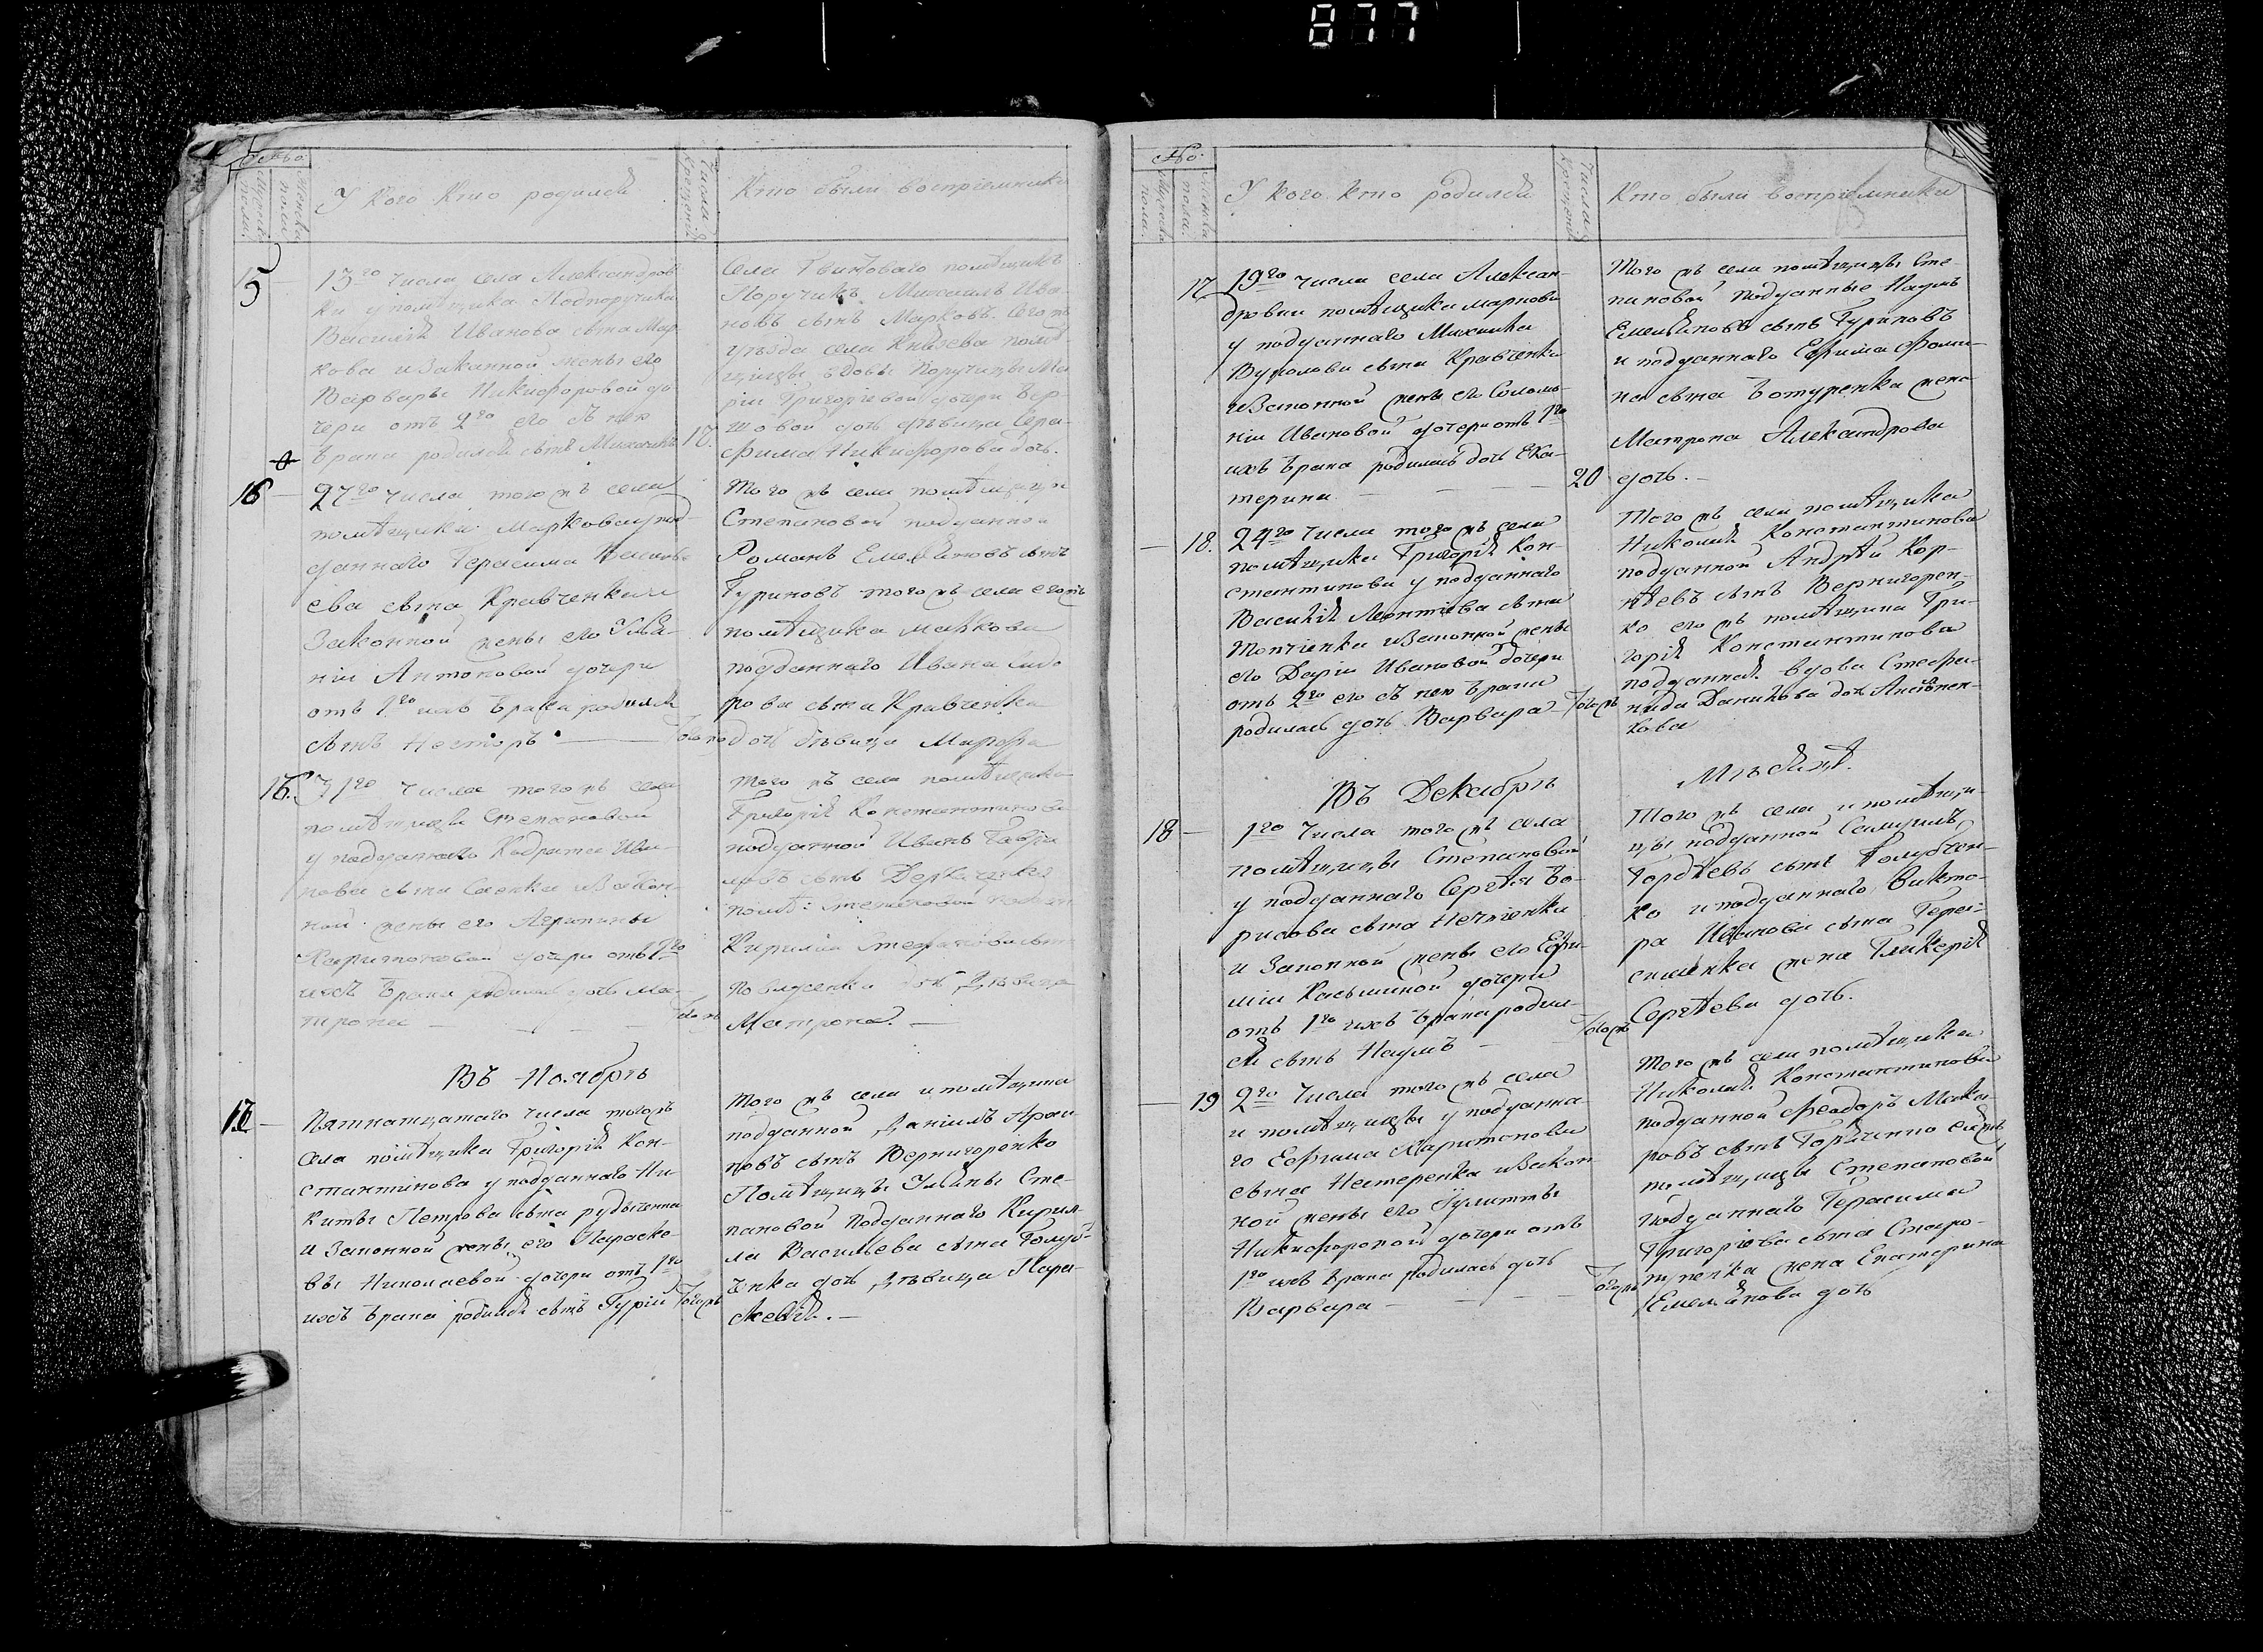 877
У кого кто родился
Числа крещенія
Кто были воспріемники
15
13го числа села Александров
ки у помѣщика Подпоручика
Василія Иванова сына Мар
кова и Законной жены его
Варвары Никифоровой до
чери отъ 2го его съ нею
брака родился сынъ Михаилъ
17.
Села помѣщикъ
Поручикъ Михаилъ Ива
новъ сынъ Марковъ. того жъ
уѣзда села Княжева помѣ
щицы вдовы Поручицы Ма
ріи Григорьевой дочери
дочь дѣвица Сера
фима Никифорова дочь.
16
27го числа того жъ села
помѣщика Маркова у под
даннаго Герасима
ева сына Кравченка и
Законной жены его Улья
ніи Антоновой дочери
отъ 1го ихъ брака родился
сынъ Несторъ
Того жъ села помѣщицы
Степановой подданной
Романъ Емельяновъ сынъ
Гуриновъ того жъ села того жъ
помѣщика Маркова
подданнаго Ивана Сидо
рова сына Кравченка
дочь дѣвица Марфа
16.
31го числа того жъ села
помѣщицы Степановой
у подданнаго Кодрата Ива
нова сына и Закон
ной жены его Агрипины
Харитоновой дочери отъ 1го
ихъ брака родилась дочь Ма
трона
того жъ
Того жъ села помѣщика
Григорія Константинова
подданной Иванъ Гаври
ловъ сынъ Деркаченко
помѣ: Степановой
Кирилла Стефанова сына
дочь дѣвица
Матрона.
Въ Ноябрѣ
17
Пятнатцатаго числа тогожъ
села помѣщика Григорія Кон
стантинова у подданнаго Ни
киты Петрова сына Рудыченка
и Законной жены его Параске
вы Николаевой дочери отъ 1го
ихъ брака родился сынъ Гурій
Тогожъ
Того жъ села и помѣщика
подданной Даніилъ
новъ сынъ Вернигоренко
Помѣщицы Ульяны Сте
пановой подданнаго Кирил
ла Васильева сына Голуб
ченка дочь дѣвица Пара
скевія.
No:
У кого кто родился
Числа крещенія
Кто были воспріемники
17
19го числа села Алексан
дровки помѣщика Маркова
у подданнаго Михаила
сына Кравченка
и Законной жены его Соломо
ніи Ивановой дочери отъ 1го
ихъ брака родилась дочь Ека
терина
20
Того жъ села помѣщицы Сте
пановой подданные Наумъ
Емельяновъ сынъ Гуриновъ
и подданнаго Ефрима Фоми
на сына Ботуренка жена
Матрона Александрова
дочь.
18.
24го числа того жъ села
помѣщика Григорія Кон
стантинова у подданнаго
Василія Леонтіева сына
и Законной жены
его Даріи Ивановой дочери
отъ 2го его съ нею брака
родилась дочь Варвара
Тогожъ
Того жъ села помѣщика
Николая Константинова
подданной Андрѣй Кор
нѣевъ сынъ Вернигорен
ко его жъ помѣщика Гри
горія Константинова
подданная вдова Стефа
нида Данилова дочь
кова
Въ Декабрѣ
Мѣсяцѣ.
18
1го числа того жъ села
помѣщицы Степановой
у подданнаго Сергѣя Бо
рисова сына Нечіенка
и Законной жены его Ефи
міи Касьминой дочери
отъ 1го ихъ брака родил
ся сынъ Наумъ
Тогожъ
Того жъ села и помѣщи
цы подданной Самуилъ
Гордѣевъ сынъ Голубчен
ко и подданнаго Викто
ра Иванова сына Гера
сименка жена Гликерія
Сергѣева дочь.
19
2го числа того жъ села
и помѣщицы у подданна
го Ефрима Харитонова
сына Нестеренка и Закон
ной жены его Гулитты
Никифоровой дочери отъ
1го ихъ брака родилась дочь
Варвара
Тогожъ
Того жъ села помѣщика
Николая Константинова
подданной Феодоръ Мака
ровъ сынъ
помѣщицы Степановой
подданнаго Герасима
Григоріева сына Старо
жена Екатерина
Емельянова дочь